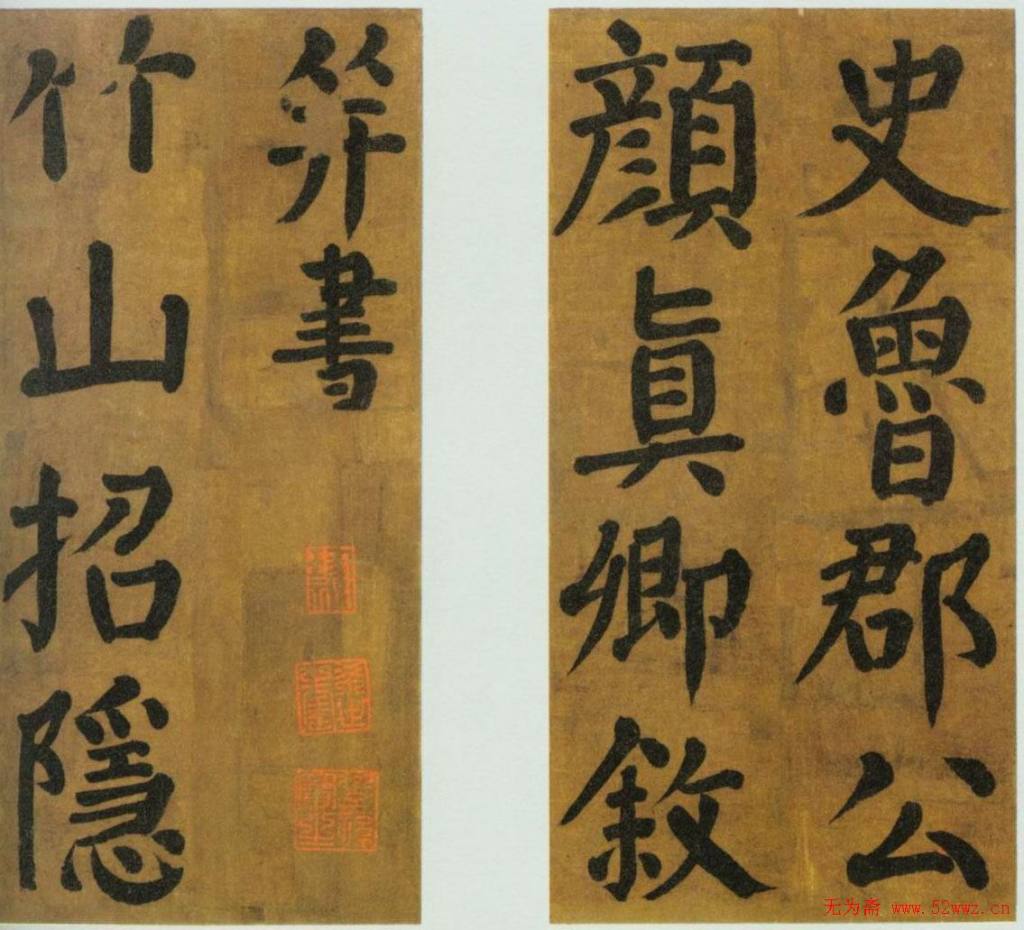 史魯郡公
顔真卿敘
筭書
竹山招隱
无为斋 www.52wwz.cn